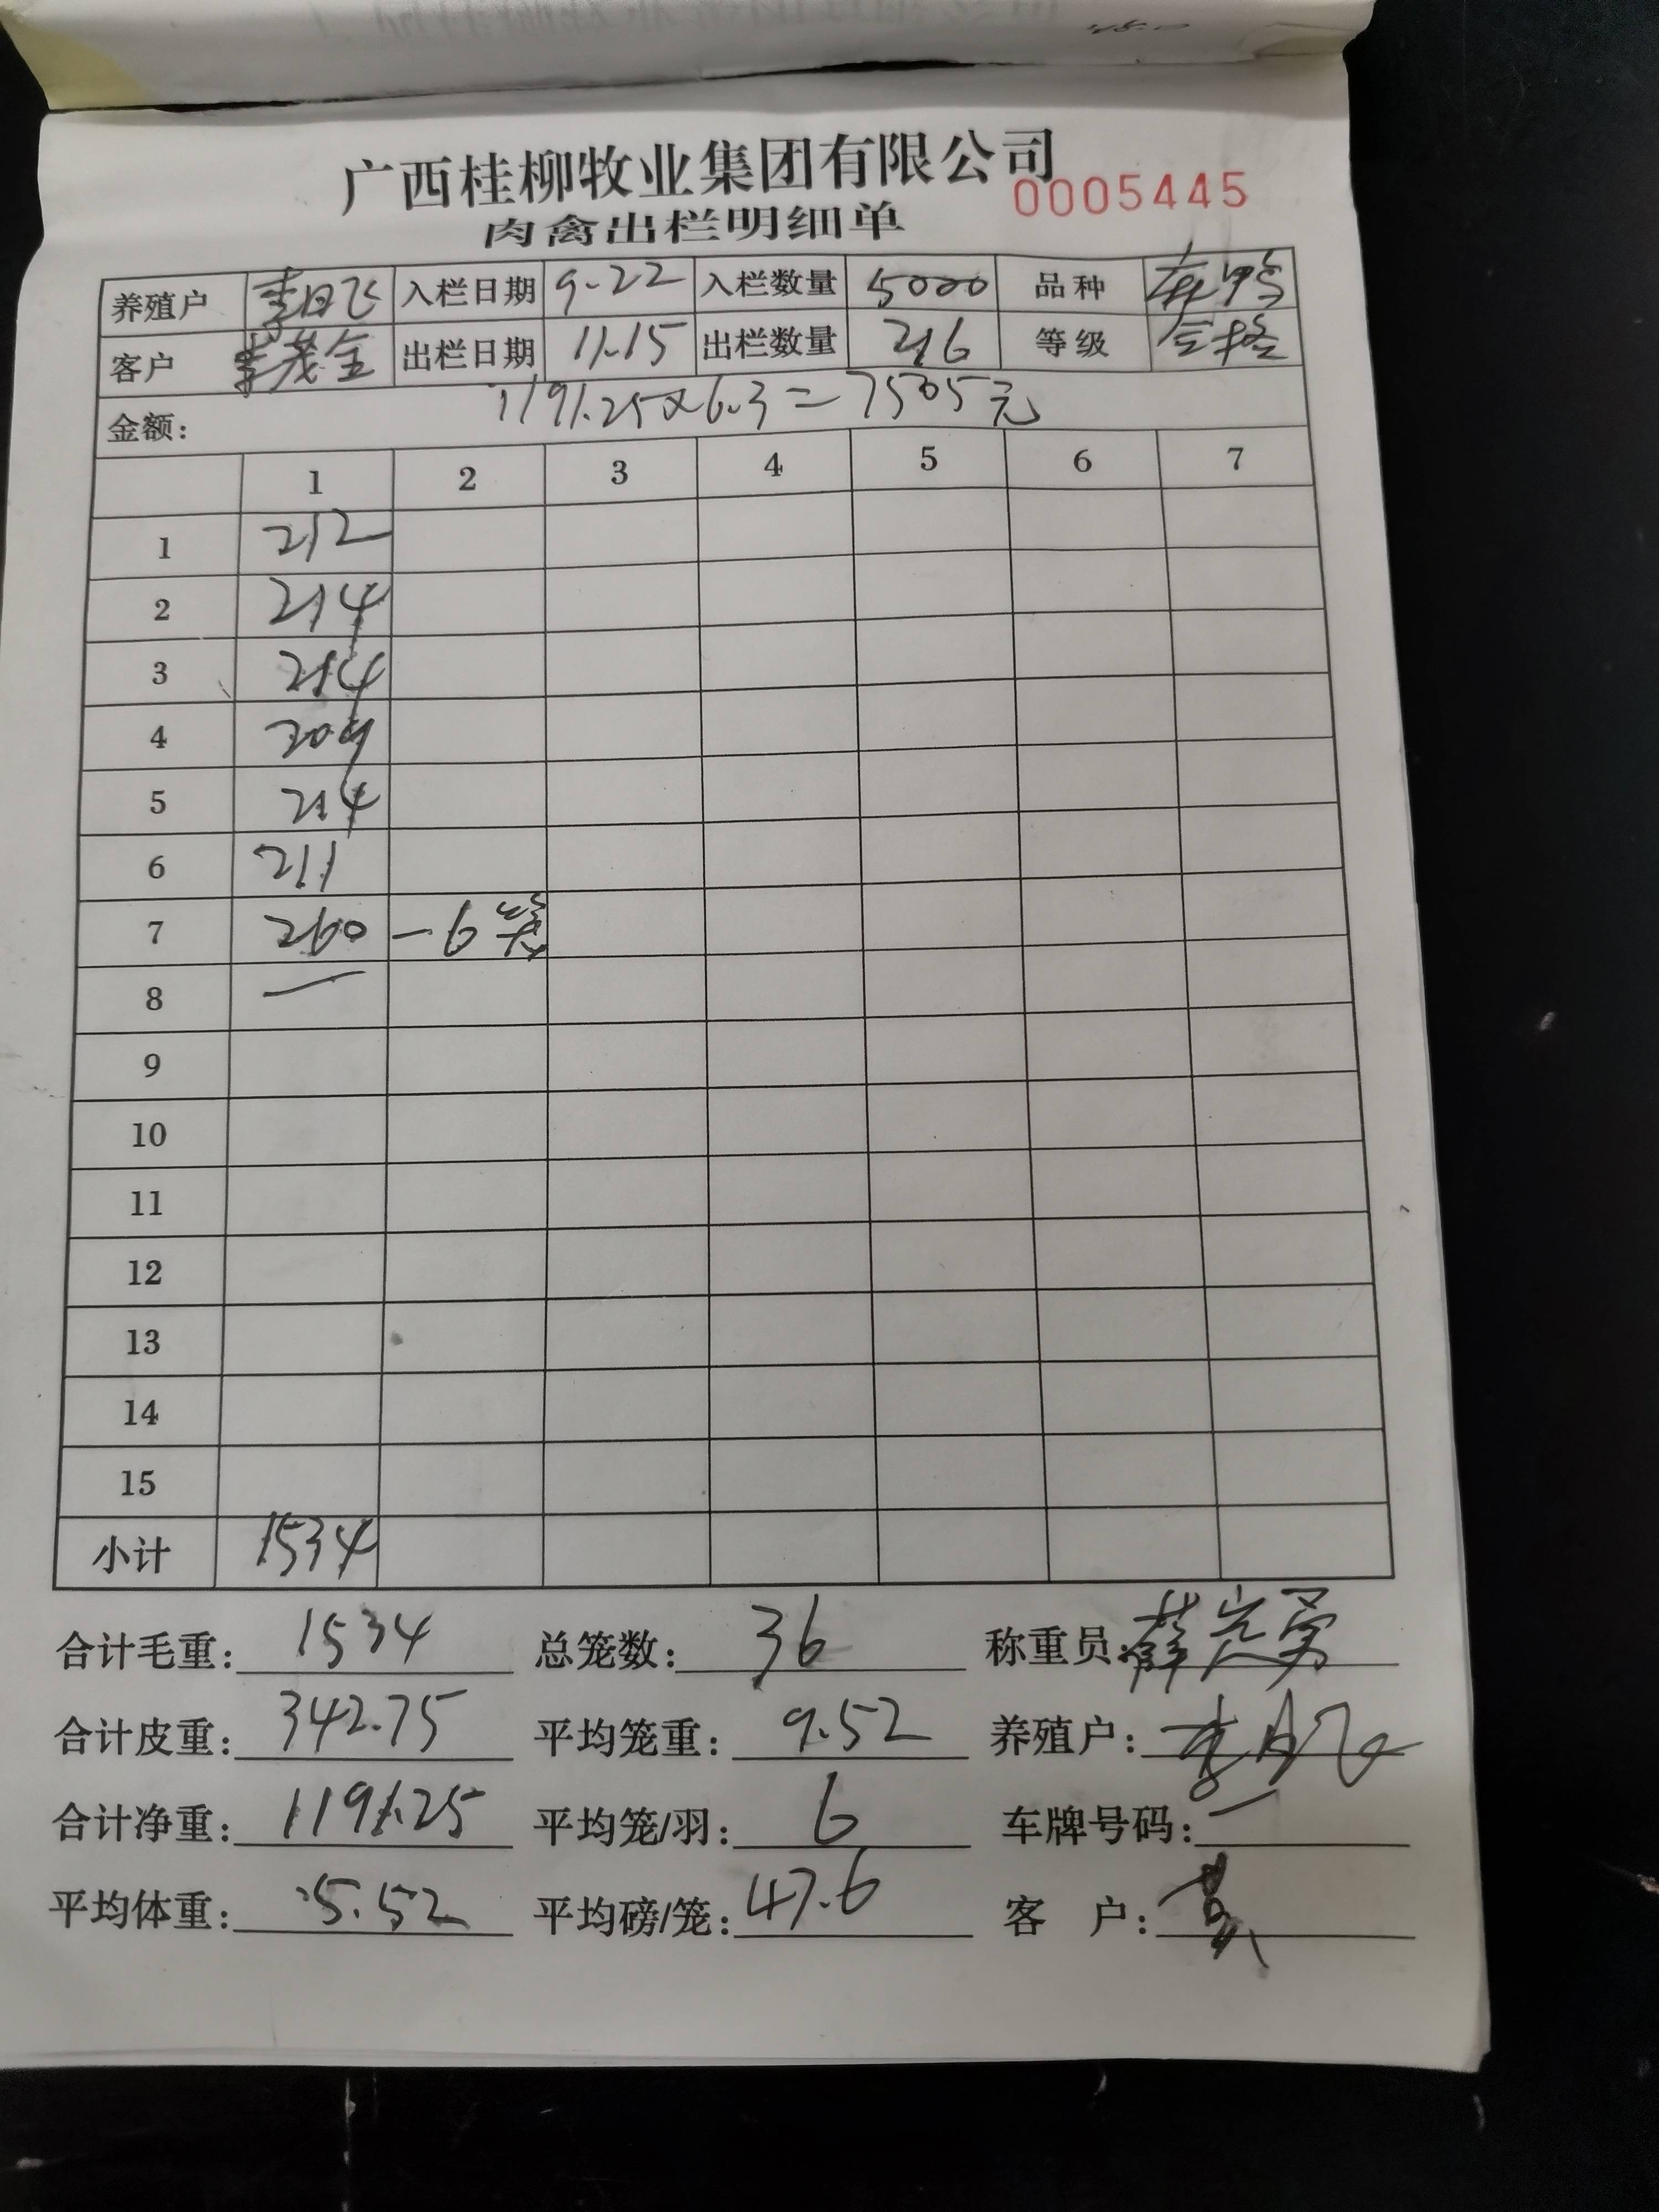 广西桂柳牧业集团有限公司
0005445
肉禽出栏明细单
养殖户 李日飞 入栏日期 9.22 入栏数量 5000 品种
客户 李茂全 出栏日期 11.15 出栏数量 216 等级
金额: 1191.25×6.3=7505元
1 2 3 4 5 6 7
1 212
2 214
3 214
4 209
5 214
6 211
7 260 -6笼
8 —
9
10
11
12
13
14
15
小计 1534
合计毛重: 1534 总笼数: 36 称重员:
合计皮重: 342.75 平均笼重: 9.52 养殖户: 李日飞
合计净重: 1191.25 平均笼/羽: 6 车牌号码: —
平均体重: 5.52 平均磅/笼: 47.6 客 户: